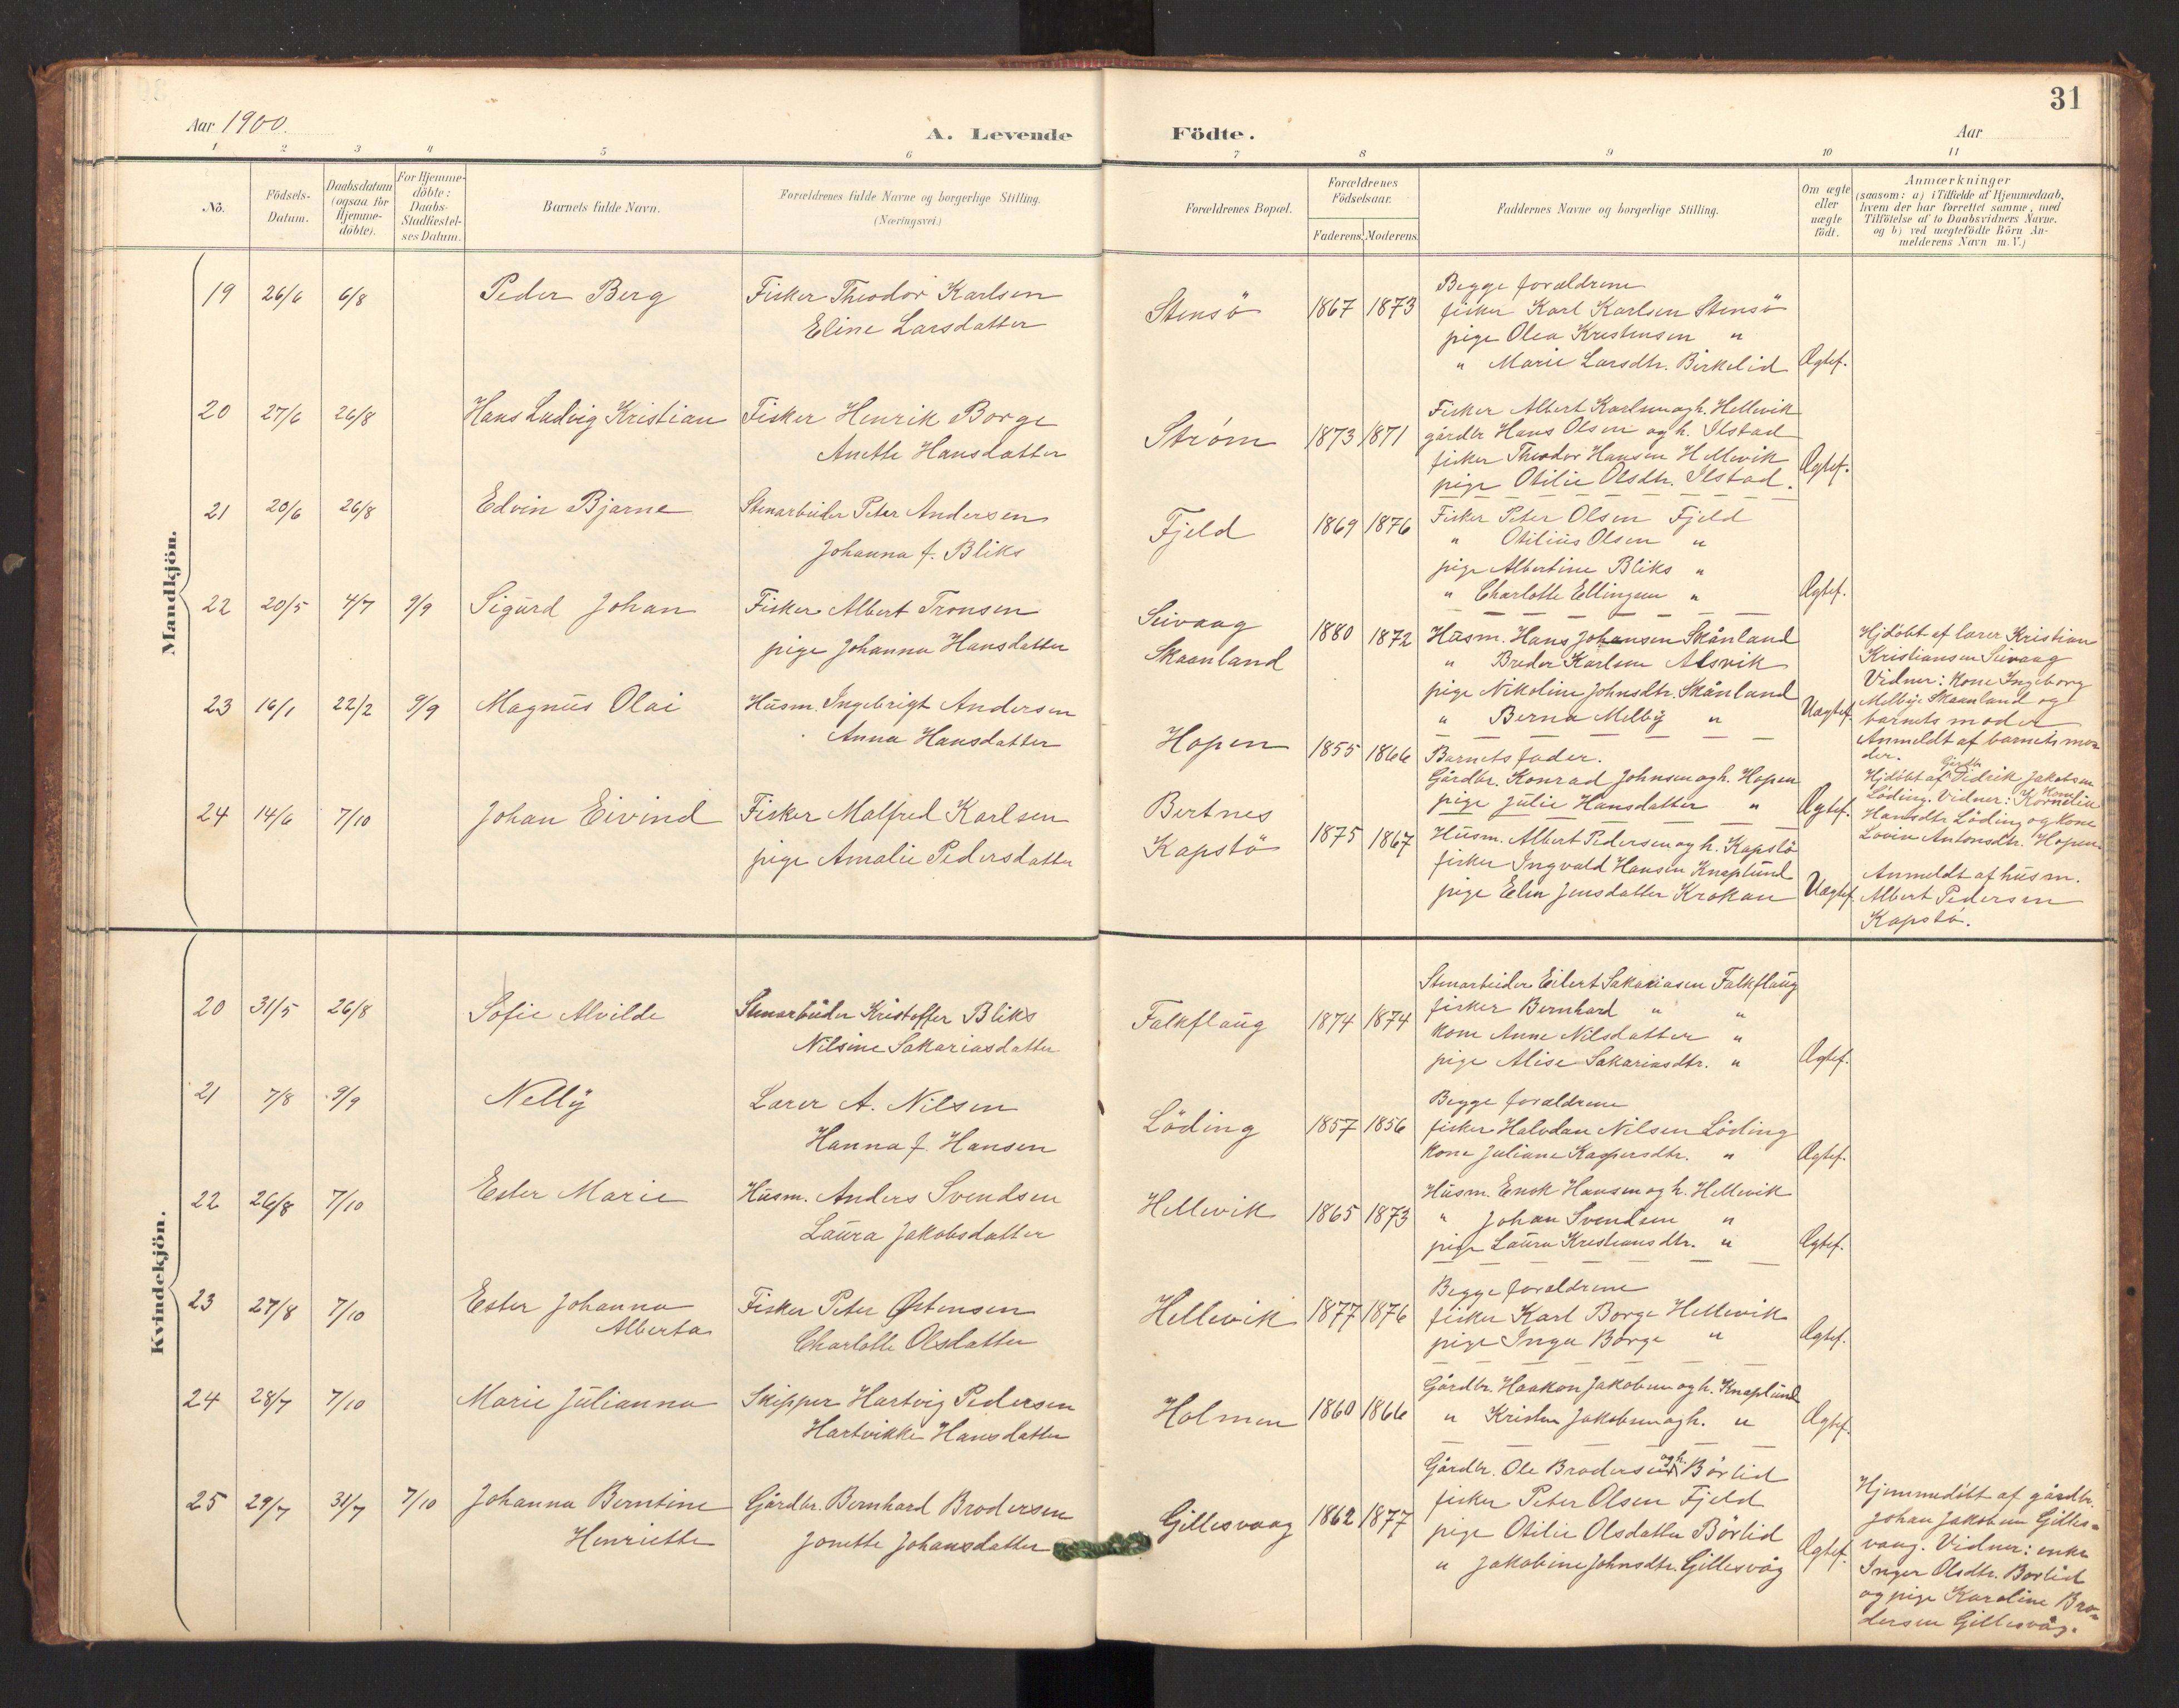 31
Aar 1900.
A. Levende
Födte.
Aar
1 2 3 4 5 6 7 8 9 10 11
No.
Födsels-
Datum.
Daabsdatum
(ogsaa for
Hjemme-
döbte).
For Hjemme-
döbte:
Daabs-
Stadfæstel-
ses Datum.
Barnets fulde Navn.
Forældrenes fulde Navne og borgerlige Stilling.
(Næringsvei.)
Forældrenes Bopæl.
Forældrenes
Födselsaar.
Faderens. Moderens.
Faddernes Navne og borgerlige Stilling.
Om ægte
eller
uægte
födt.
Anmærkninger
(saasom: a) i Tilfælde af Hjemmedaab,
hvem der har forrettet samme, med
Tilföielse af to Daabsvidners Navne.
og b) ved uægtefödte Börn An-
melderens Navn m. V.)
Mandkjön.
19 26/6 6/8 Peder Berg Fisker Theodor Karlsen
Eline Larsdatter
Stensö 1867 1873
Begge forældrene
fisker Karl Karlsen Stensö
pige Olea Kristensen "
" Marie Larsdtr. Birkelid Ægtef.
20 27/6 26/8 Hans Ludvig Kristian Fisker Henrik Borge
Anette Hansdatter
Strøm 1873 1871
Fisker Albert Karlsen og h. Hellevik
gårdbr Hans Olsen og h. Ilstad
fisker Theodor Hansen Hellevik
pige Otilie Olsdtr. Ilstad. Ægtef.
21 20/6 26/8 Edvin Bjarne Stenarbeider Peter Andersen
Johanna f. Bliks
Fjeld 1869 1876
Fisker Peter Olsen Fjeld
" Otilius Olsen "
pige Albertine Bliks "
" Charlotte Ellingsen " Ægtef.
22 20/5 4/7 9/9 Sigurd Johan Fisker Albert Tronsen
pige Johanna Hansdatter
Seivaag
Skaanland
1880 1872
Husm. Hans Johansen Skånland
" Breder Karlsen Alsvik
pige Nikoline Johnsdtr. Skånland
" Berna Melby " Uægtef.
Hjdöbt af lærer Kristian
Kristiansen Seivaag
Vidner: kone Ingeborg
Melbye Skaanland og
barnets moder
Anmeldt af barnets mo-
der.
23 16/1 22/2 9/9 Magnus Olai Husm. Ingebrigt Andersen
Anna Hansdatter
Hopen 1855 1866
Barnets fader.
Gårdbr. Konrad Johnsen og h. Hopen
pige Julie Hansdatter " Ægtef.
Hjdöbt af Gårdbr Didrik Jakobsen
Löding. Vidner: Kone Kornelia
Hansdtr Löding og kone
Lovise Antonsdtr. Hopen.
24 14/6 7/10 Johan Eivind Fisker Malfred Karlsen
pige Amalie Pedersdatter
Bertnes
Kapstö
1875 1867
Husm. Albert Pedersen og h. Kapstö
fisker Ingvald Hansen Knaplund
pige Elen Jensdatter Krokan Uægtef.
Anmeldt af husm.
Albert Pedersen
Kapstö.
Kvindekjön.
20 31/5 26/8 Sofie Alvilde Stenarbeider Kristoffer Bliks
Nilsine Sakariasdatter
Falkflaug 1874 1874
Stenarbeider Eilert Sakariasen Falkflaug
fisker Bernhard " "
kone Anne Nilsdatter "
pige Alise Sakariasdtr. " Ægtef.
21 7/8 9/9 Nelly Lærer A. Nilsen
Hanna f. Hansen
Löding 1857 1856
Begge forældrene
fisker Halvdan Nilsen Löding
kone Juliane Kaspersdtr. " Ægtef.
22 26/8 7/10 Ester Marie Husm. Anders Svendsen
Laura Jakobsdatter
Hellevik 1865 1873
Husm. Enok Hansen og h. Hellevik
" Johan Svendsen "
pige Laura Kristiansdtr. " Ægtef.
23 27/8 7/10 Ester Johanna
Alberta
Fisker Peter Østensen
Charlotte Olsdatter
Hellevik 1877 1876
Begge forældrene
fisker Karl Borge Hellevik
pige Inga Borge " Ægtef.
24 28/7 7/10 Marie Julianna Skipper Hartvig Pedersen
Hartvikke Hansdatter
Holmen 1860 1866
Gårdbr. Haakon Jakobsen og h. Knaplund
" Kristen Jakobsen og h. " Ægtef.
25 29/7 31/7 7/10 Johanna Berntine
Henriette
Gårdbr. Bernhard Brodersen
Jonette Johansdatter
Gillesvaag 1862 1877
Gårdbr. Ole Brodersen og h. Börlid
fisker Peter Olsen Fjeld
pige Otilie Olsdatter Börlid
" Jakobine Johnsdtr. Gillesvåg Ægtef.
Hjemmedöbt af gårdbr.
Johan Jakobsen Gilles-
vaag. Vidner: enke
Inger Olsdtr. Börlid
og pige Karoline Bro-
dersen Gillesvåg.